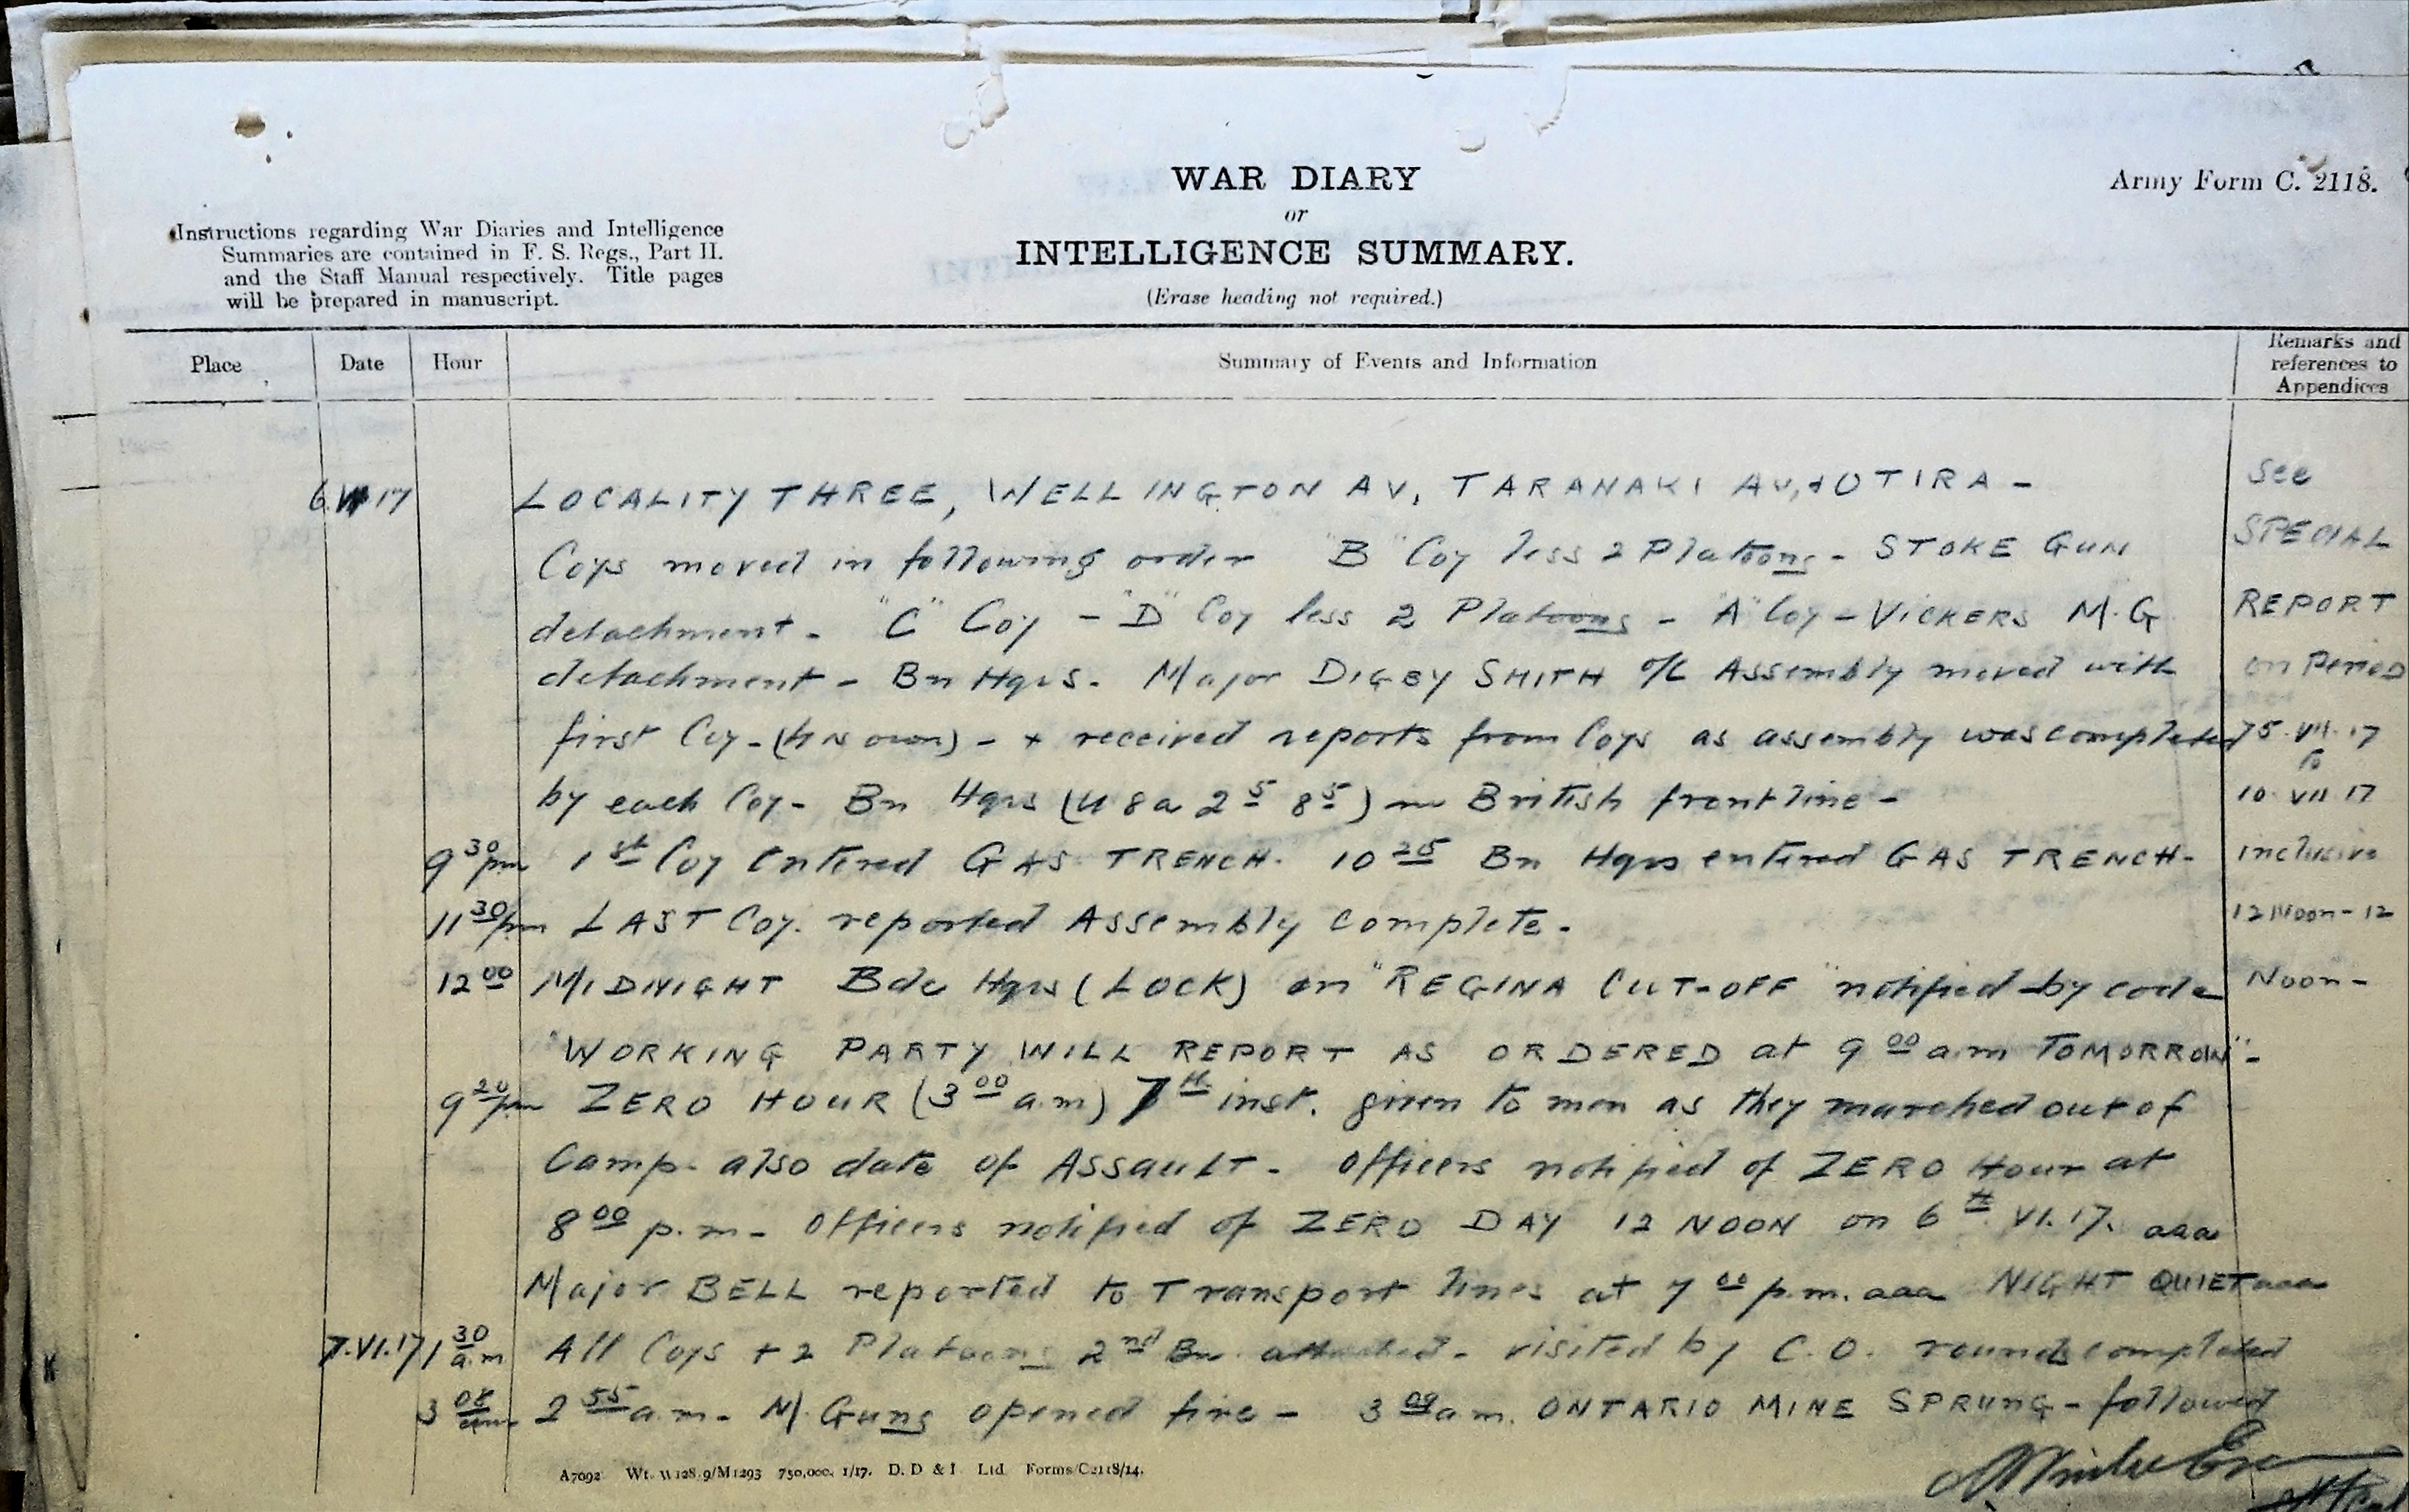 WAR DIARY
or
INTELLIGENCE SUMMARY.
(Erase heading not required.)
Army Form C. 2118.
Instructions regarding War Diaries and Intelligence
Summaries are contained in F. S. Regs., Part II.
and the Staff Manual respectively. Title pages
will be prepared in manuscript.
Place Date Hour Summary of Events and Information Remarks and references to Appendices
6.VI.17 LOCALITY THREE, WELLINGTON AV, TARANAKI AV, + OTIRA -
Coys moved in following order "B" Coy less 2 Platoons - STOKE GUN
detachment - "C" Coy - "D" Coy less 2 Platoons - "A" Coy - VICKERS M.G
detachment - Bn Hqrs. Major DIGBY SMITH O/C Assembly moved with
first Coy - (his own) - + received reports from Coys as assembly was completed
by each Coy - Bn Hqrs (U 8 a 2 5 8 5) in British front line -
9 30 pm 1st Coy entered GAS TRENCH. 10 25 Bn Hqrs entered GAS TRENCH -
11 30 pm LAST Coy. reported Assembly complete -
12 00 MIDNIGHT Bde Hqrs (LOCK) on "REGINA CUT-OFF" notified by code
"WORKING PARTY WILL REPORT AS ORDERED at 9 00 a.m TOMORROW" -
9 20 pm ZERO HOUR (3 00 a.m) 7th inst. given to men as they marched out of
Camp - also date of ASSAULT - Officers notified of ZERO Hour at
8 00 p.m - Officers notified of ZERO DAY 12 NOON on 6th VI.17. aaa
Major BELL reported to Transport lines at 7 00 p.m. aaa NIGHT QUIET aaa
7.VI.17 1 30 a.m All Coys + 2 Platoons 2nd Bn attached - visited by C.O. rounds completed
3 08 am 2 55 a.m - M. Guns opened fire - 3 09 a.m. ONTARIO MINE SPRUNG - followed
See
SPECIAL
REPORT
on Period
5.VII.17
to
10 VII 17
inclusive
12 Noon - 12
Noon -
A7092 Wt. w128.9/M1293 750,000. 1/17. D. D & L Ltd. Forms/C2118/14.